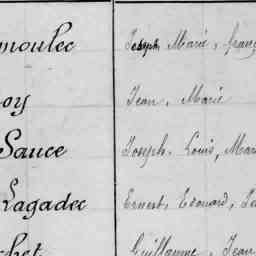 moulec Joseph Marie, franç
oy Jean, Marie
Sauce Joseph, Louis, Mar
Lagadec Ernest, Edouard, Je
chet Guillaume, Jean